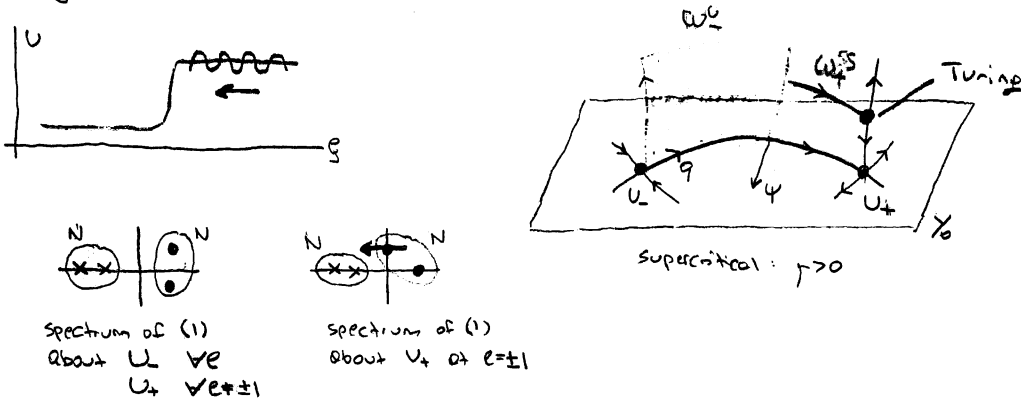 U
ξ
N
N
spectrum of (1)
about U_ ∀ℓ
U+ ∀ℓ≠±1
N
N
spectrum of (1)
about U+ at ℓ=±1
Turing
q
ψ
U_
U+
Y₀
supercritical: μ>0